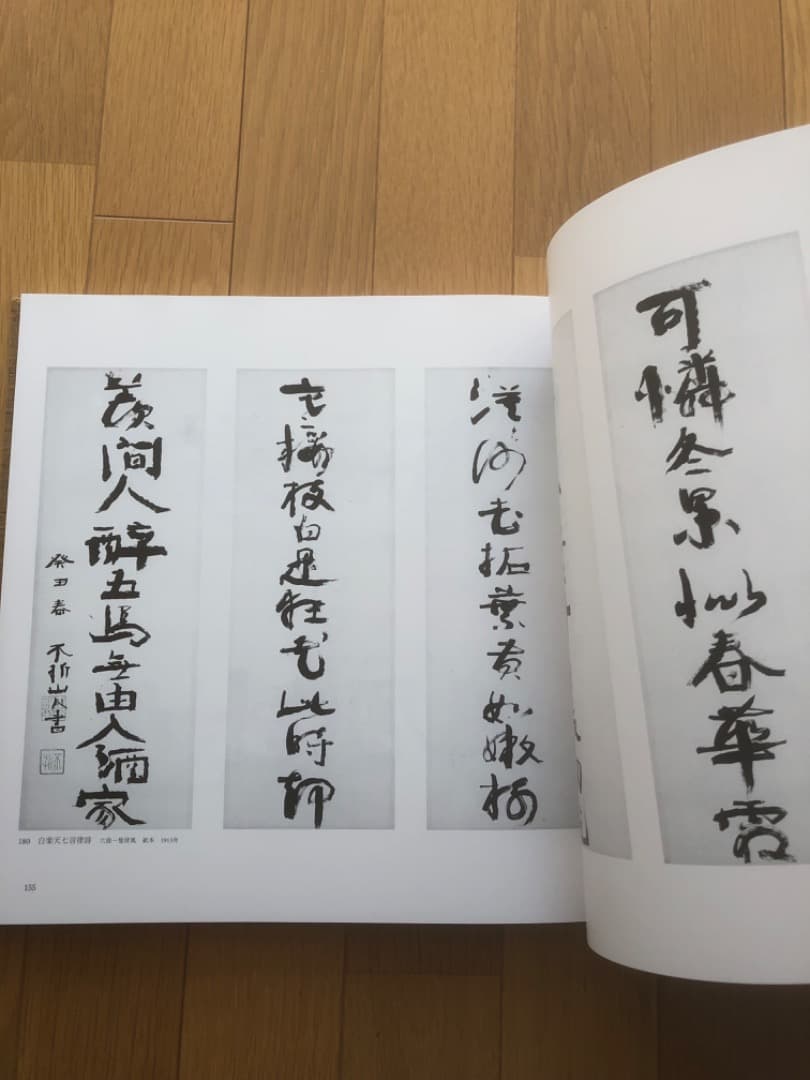 可憐冬景似春華霜
漠〻沙老柘葉黄如嫩樹
寒櫻枝白是狂花此時却
羨間人醉五馬無由入酒家
癸丑春 不折山人書
180 白楽天七言律詩 六曲一隻屏風 紙本 1913年
155